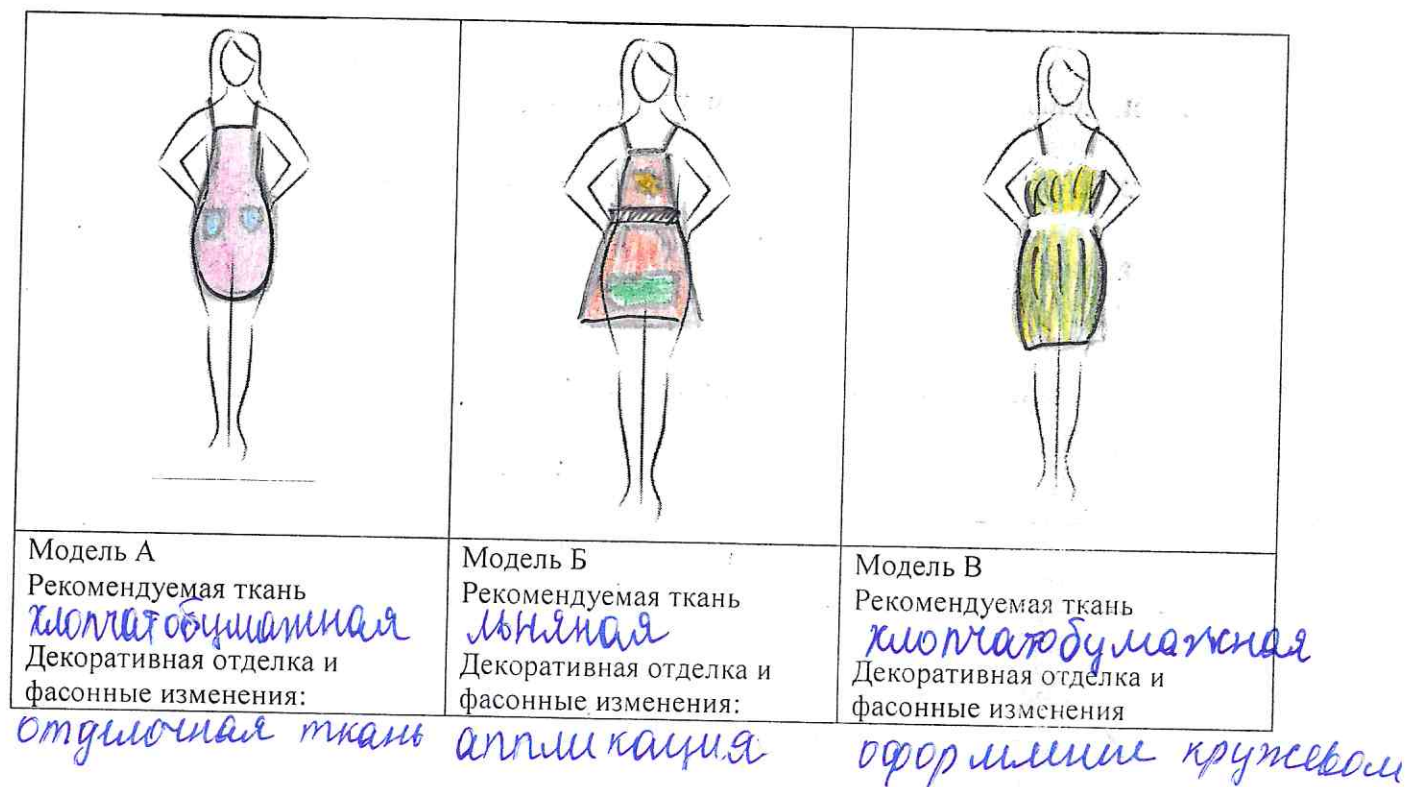 Модель А
Рекомендуемая ткань
хлопчатобумажная
Декоративная отделка и
фасонные изменения:
отделочная ткань
Модель Б
Рекомендуемая ткань
льняная
Декоративная отделка и
фасонные изменения:
аппликация
Модель В
Рекомендуемая ткань
хлопчатобумажная
Декоративная отделка и
фасонные изменения
оформление кружевом